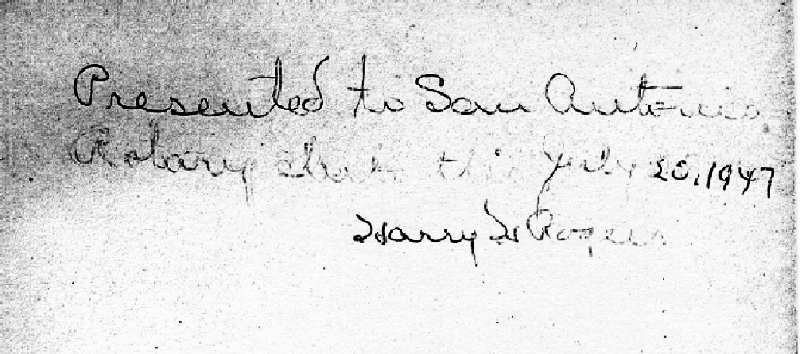 Presented to San Antonio
Rotary Club this July 20, 1947
Harry H Rogers